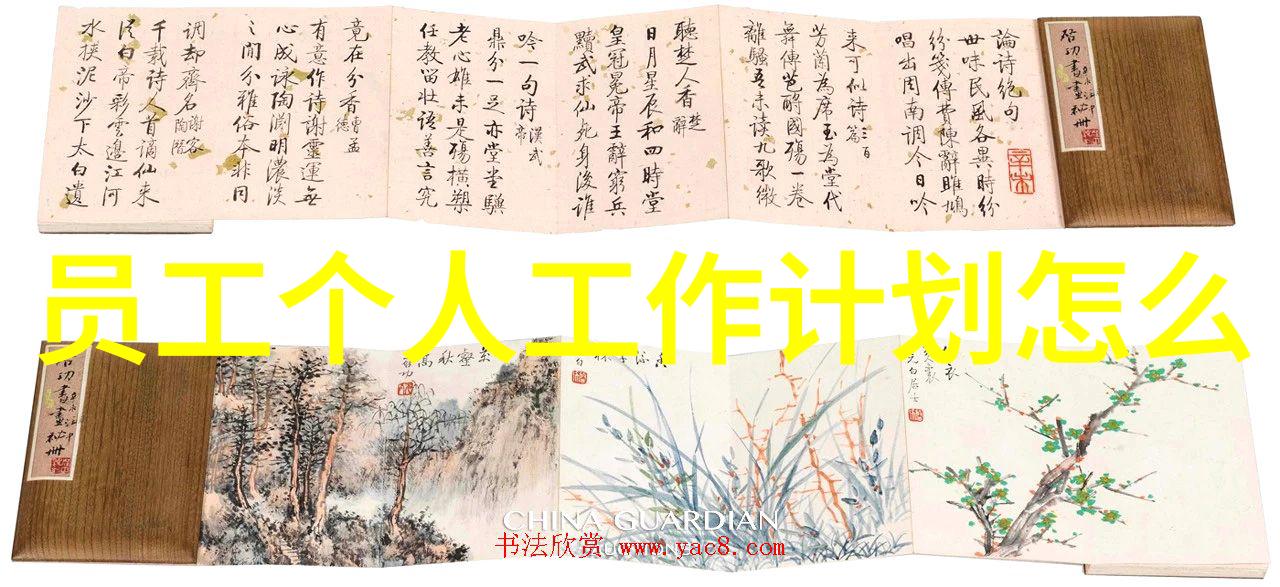 啓功書畫袖冊
論詩絕句
世味民風各異時紛
紛箋傳費陳辭雎鳩
唱出周南調今日吟
来可似詩三百篇
芳蘭為席玉為堂代
舞傳芭酹國殤一卷
離騷吾未读九歌微
聽楚人香楚辭
日月星辰和四時堂
皇冠冕帝王辭窮兵
黷武求仙死身後誰
吟一句詩漢武帝
鼎分一足亦堂堂驥
老心雄未是殤橫槊
任教留壮語善言究
竟在分香曹孟德
有意作詩謝靈運無
心成詠陶淵明濃淡
之間分雅俗本非同
調却齊名謝客陶潛
千載詩人首謫仙来
從白帝彩雲邊江河
水挾泥沙下太白遺
员工个人工作计划怎么
CHINA GUARDIAN
书法欣赏 www.yac8.com